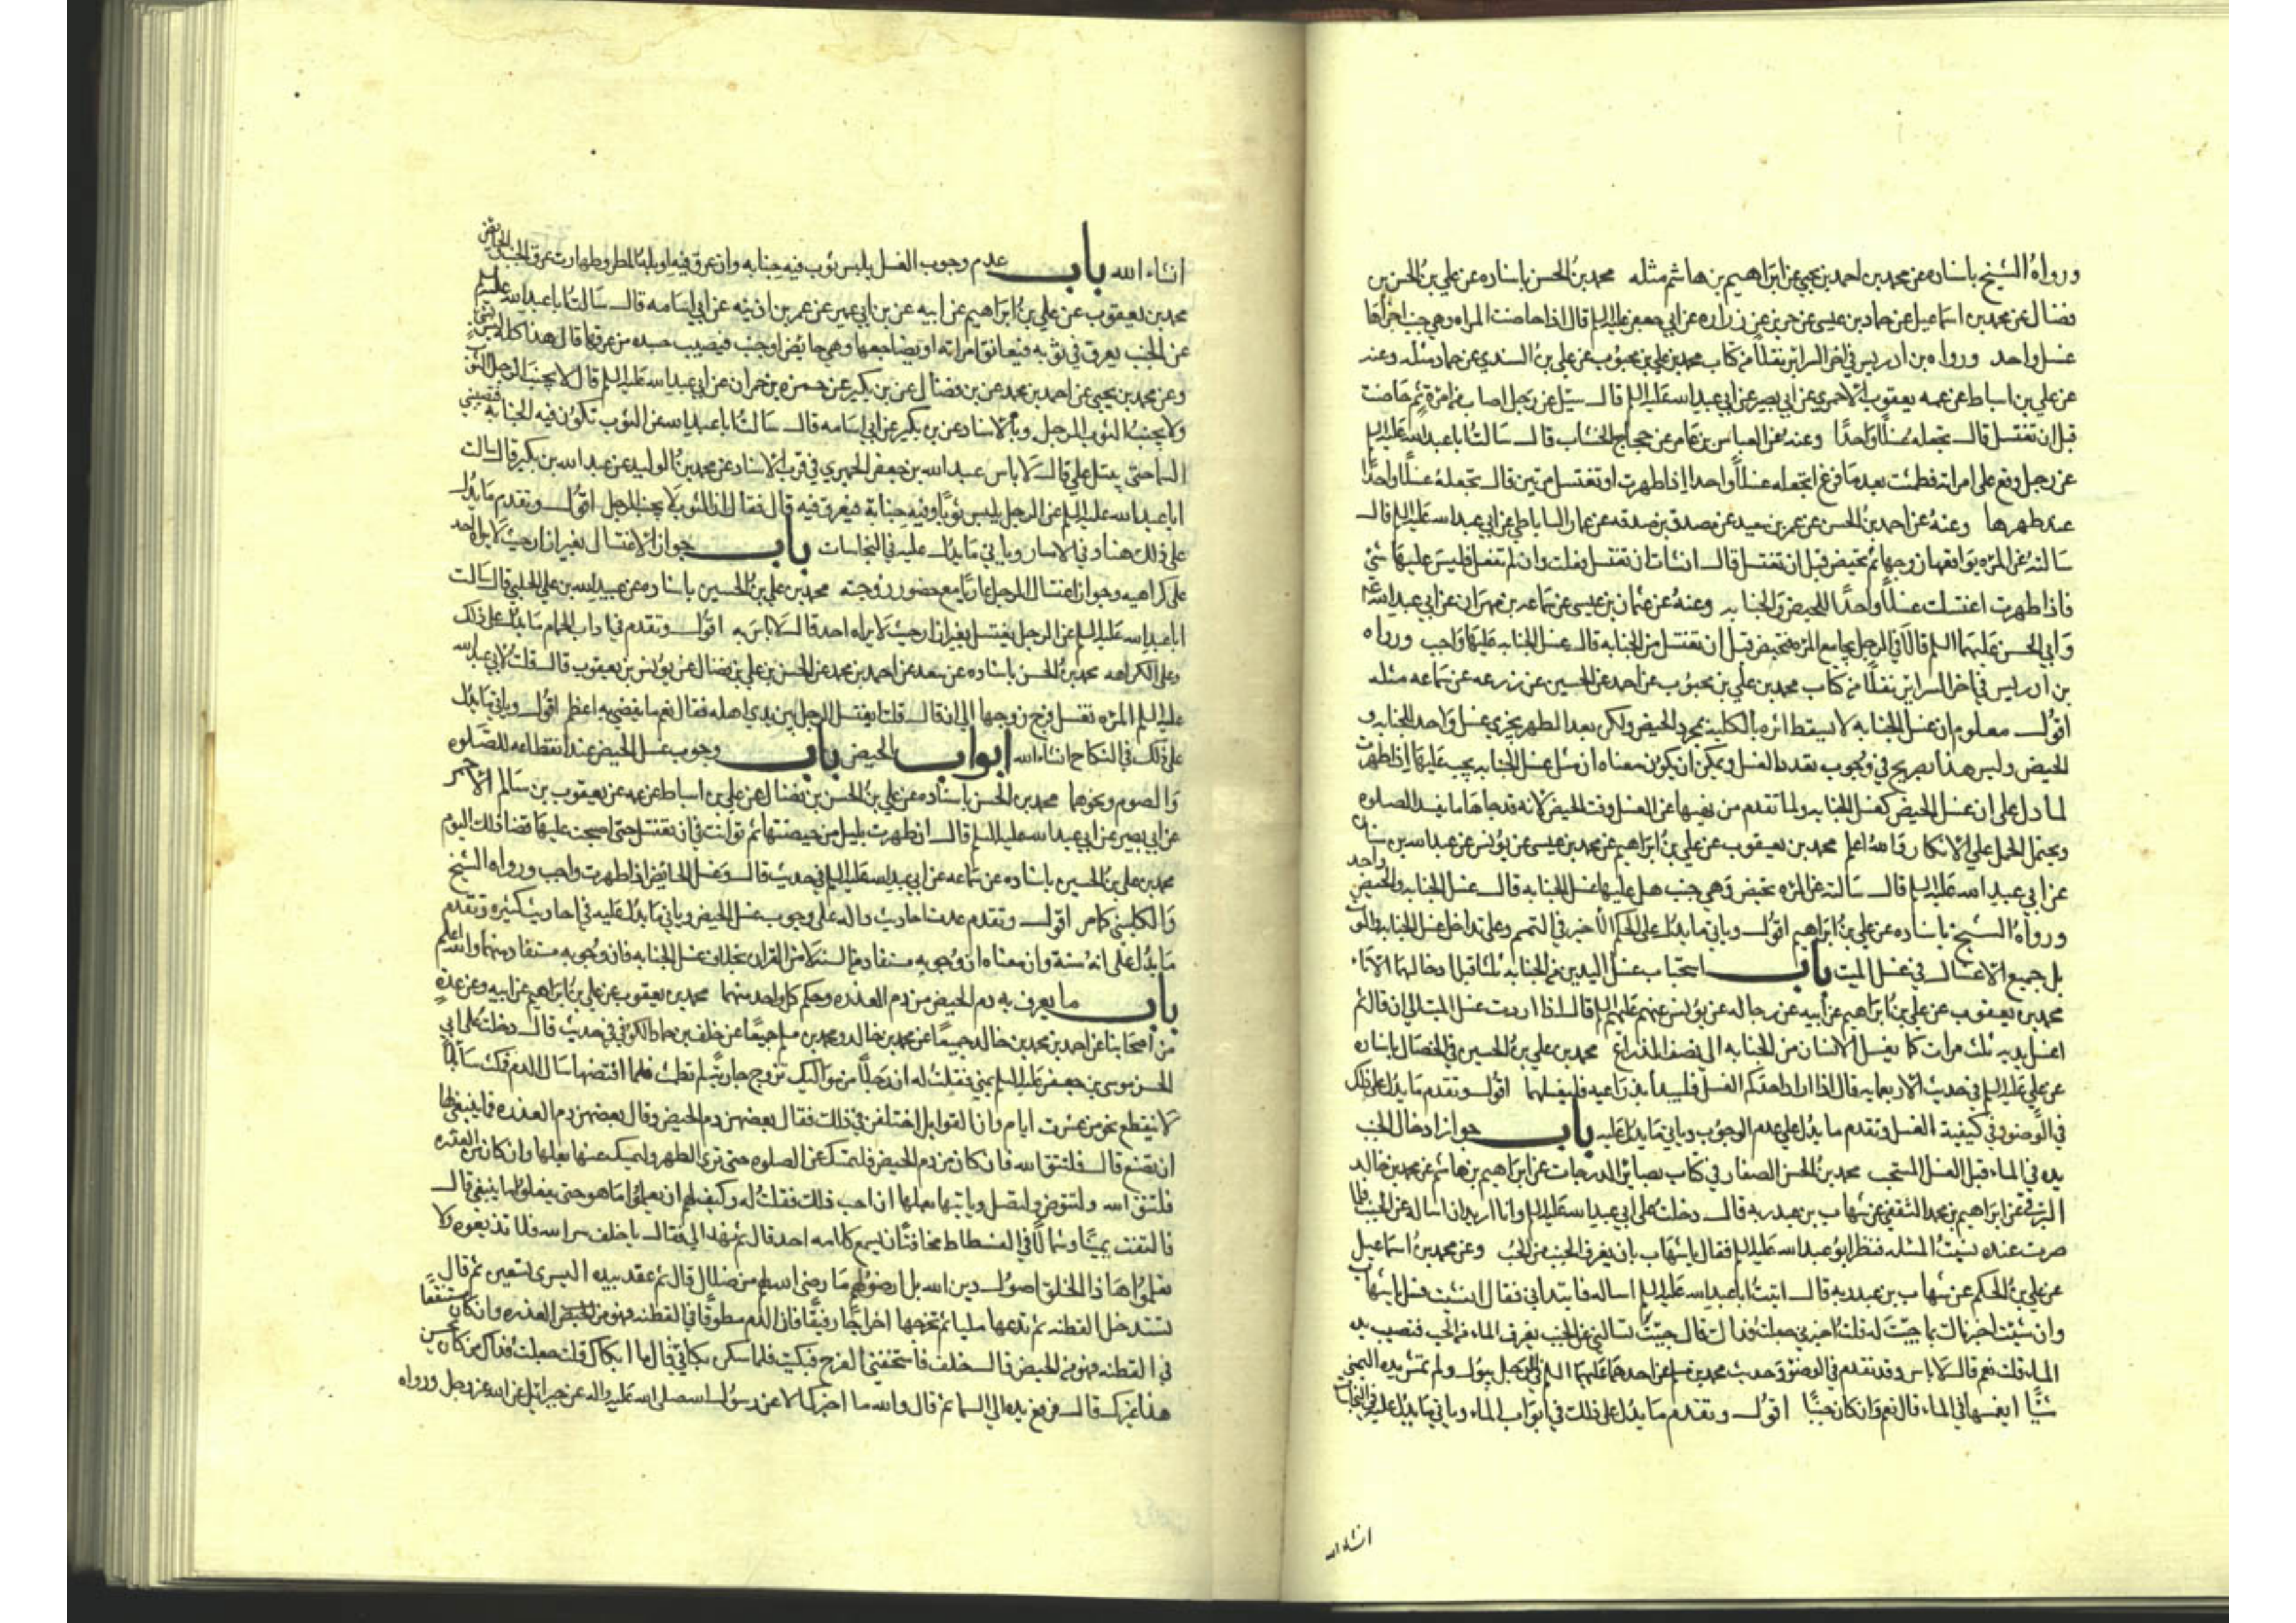 ورواهُ الشيخ باسناده عن محمد بن احمد بن يحيى عن ابراهيم بن هاشم مثله محمد بن الحسن باسناده عن علي بن الحسن بن
فضال عن محمد بن اسماعيل عن حماد بن عيسى عن حريز عن زراره عن ابي جعفر عليه السلم قال اذا حاضت المراه وهي جنب اجزاها
غسل واحد ورواه بن ادريس في اخر السرائر نقلًا من كتاب محمد بن علي بن محبوب عن علي بن السندي عن حماد مثله وعنه
عن علي بن اسباط عن عمه يعقوب الاحمري عن ابي بصير عن ابي عبد الله عليه السلم قال سئل عن رجل اصاب من امرة ثم حاضت
قبل ان تغتسل قال تجعله غسلًا واحدًا وعنه عن العباس بن عامر عن حجاج الخشاب قال سالت ابا عبد الله عليه السلم
عن رجل وقع على امراته فطمثت بعد ما فرغ اتجعله غسلًا واحدا اذا طهرت او تغتسل مرتين قال تجعله غسلًا واحدًا
عند طهرها وعنهُ عن احمد بن الحسن عن عمر بن سعيد عن مصدق بن صدقه عن عمار الساباطي عن ابي عبد الله عليه السلم قال
سالته عن المره يواقعها زوجها ثم تحيض قبل ان تغتسل قال ان شات ان تغتسل فعلت وان لم تفعل فليس عليها شي
فاذا طهرت اغتسلت غسلًا واحدًا للحيض والجنابه وعنهُ عن عثمان بن عيسى عن سماعه بن مهران عن ابي عبد الله
وابي الحسن عليهما السلم قالا في الرجل يجامع المره فتحيض قبل ان تغتسل من الجنابه قال غسل الجنابه عليها واجب ورواه
بن ادريس في اخر السرائر نقلًا من كتاب محمد بن علي بن محبوب عن احمد عن الحسين عن زرعه عن سماعه مثله
اقول معلوم ان غسل الجنابه لا يسقط اثره بالكلية بمجرد الحيض ولكن بعد الطهر يجزي غسل واحد للجنابه و
الحيض وليس هذا بصريح في وجوب تقديم الغسل ويمكن ان يكون معناه ان مثل غسل الجنابه يجب عليها اذا طهرت
لما دل على ان غسل الحيض كغسل الجنابه ولما تقدم من نهيها عن الغسل وقت الحيض لانه قد جاها ما يفسد الصلوه
ويحتمل الحمل على الانكار والله اعلم محمد بن يعقوب عن علي بن ابراهيم عن محمد بن عيسى عن يونس عن عبد الله بن سنان
عن ابي عبد الله عليه السلم قال سالته عن المره تحيض وهي جنب هل عليها غسل الجنابه قال غسل الجنابه والحيض واحد
ورواهُ الشيخ باسناده عن علي بن ابراهيم اقول وياتي ما يدل على الحكم الاخير في التيمم وعلى تداخل غسل الجنابه والموت
بل جميع الاغسال في غسل الميت باب استحباب غسل اليدين من الجنابه ثلثا قبل ادخالهما الاناء
محمد بن يعقوب عن علي بن ابراهيم عن ابيه عن رجاله عن يونس عنهم عليهم السلم قال اذا اردت غسل الميت الى ان قال ثم
اغسل يديه ثلث مرات كما يغسل الانسان من الجنابه الى نصف الذراع محمد بن علي بن الحسين في الخصال باسناده
عن علي عليه السلم في حديث الاربعمايه قال اذا اراد احدكم الغسل فليبدأ بذراعيه فليغسلهما اقول وتقدم ما يدل على ذلك
في الوضوء وفي كيفية الغسل وتقدم ما يدل على عدم الوجوب وياتي ما يدل عليه باب جواز ادخال الجنب
يده في الماء قبل الغسل المستحب محمد بن الحسن الصفار في كتاب بصائر الدرجات عن ابراهيم بن هاشم عن محمد بن خالد
البرقي عن ابراهيم بن محمد الثقفي عن شهاب بن عبد ربه قال دخلت على ابي عبد الله عليه السلم وانا اريد ان اساله عن الجنب فلما
صرت عنده نسيت المسئله فنظر ابو عبد الله عليه السلم فقال يا شهاب باس ان يغرف الجنب من الحب وعن محمد بن اسماعيل
عن علي بن الحكم عن شهاب بن عبد ربه قال اتيت ابا عبد الله عليه السلم اساله فابتداني فقال ان شيت فسل يا شهاب
وان شيت اخبرناك بما جيت له قلت اخبرني جعلت فداك قال جيت تسالني عن الجنب يغرف الماء من الحب فتصيب يده
الماء قلت نعم قال لا باس وقد تقدم في الوضوء حديث محمد بن مسلم عن احدهما عليهما السلم في الرجل يبول ولم تمس يده اليمنى
شيًا ايغمسها في الماء قال نعم وان كان جنبًا اقول وتقدم ما يدل على ذلك في ابواب الماء وياتي ما يدل عليه في النجاسات
انشاء الله
انشاء الله باب عدم وجوب الغسل بلبس ثوب فيه جنابه وان عرق فيه او بله المطر وطهارت عرق الجنب والحائض
محمد بن يعقوب عن علي بن ابراهيم عن ابيه عن بن ابي عمير عن عمر بن اذينه عن ابي اسامه قال سالت ابا عبد الله عليه السلم
عن الجنب يعرق في ثوبه فيعانق امراته او يضاجعها وهي حائض او جنب فيصيب جسده من عرقها قال هذا كله ليس بشي
وعن محمد بن يحيى عن احمد بن محمد عن بن فضال عن بن بكير عن حمزه بن حمران عن ابي عبد الله عليه السلم قال لا يجنب الرجل الثوب
ولا يجنب الثوب الرجل وبالاسناد عن بن بكير عن ابي اسامه قال سالت ابا عبد الله عن الثوب تكون فيه الجنابه فتصيبني
السما حتى يبتل علي قال لا باس عبد الله بن جعفر الحميري في قرب الاسناد عن محمد بن الوليد عن عبد الله بن بكير قال سالت
ابا عبد الله عليه السلم عن الرجل يلبس ثوبًا وفيه جنابة فيعرق فيه قال فقال ان الثوب لا يجنب الرجل اقول وتقدم ما يدل
على ذلك هنا وفي الاسار وياتي ما يدل عليه في النجاسات باب جواز الاغتسال بغير ازار حيث لا يراه احد
على كراهيه وجواز اغتسال الرجل عاريًا مع حضور زوجته محمد بن علي بن الحسين باسناده عن عبيد الله بن علي الحلبي قال سالت
ابا عبد الله عليه السلم عن الرجل يغتسل بغير ازار حيث لا يراه احد قال لا باس به اقول وتقدم في اداب الحمام ما يدل على ذلك
وعلى الكراهه محمد بن الحسن باسناده عن سعد عن احمد بن محمد عن الحسن بن علي بن فضال عن يونس بن يعقوب قال قلت لابي عبد الله
عليه السلم المره تغسل فرج زوجها الى ان قال قلت ايغتسل الرجل بين يدي اهله فقال نعم ما يفضي به اعظم اقول وياتي ما يدل
على ذلك في النكاح انشاء الله ابواب الحيض باب وجوب غسل الحيض عند انقطاعه للصلوه
والصوم ونحوهما محمد بن الحسن باسناده عن علي بن الحسن بن فضال عن علي بن اسباط عن عمه يعقوب بن سالم الاحمر
عن ابي بصير عن ابي عبد الله عليه السلم قال ان طهرت بليل من حيضتها ثم توانت في ان تغتسل حتى اصبحت عليها قضا ذلك اليوم
محمد بن علي بن الحسين باسناده عن سماعه عن ابي عبد الله عليه السلم في حديث قال وغسل الحائض اذا طهرت واجب ورواه الشيخ
والكليني كما مر اقول وتقدم عدت احاديث داله على وجوب غسل الحيض وياتي ما يدل عليه في احاديث كثيره وتقدم
ما يدل على انه سنة وان معناه ان وجوبه مستفاد من السنه لا من القران بخلاف غسل الجنابه فان وجوبه مستفاد منهما والله اعلم
باب ما يعرف به دم الحيض من دم العذره وحكم كل واحد منهما محمد بن يعقوب عن علي بن ابراهيم عن ابيه وعن عدة
من اصحابنا عن احمد بن محمد بن خالد جميعًا عن محمد بن خالد ومحمد بن مسلم جميعًا عن خلف بن حماد الكوفي في حديث قال دخلت على ابي
الحسن موسى بن جعفر عليه السلم بمنى فقلت له ان رجلًا من مواليك تزوج جاريةً لم تطمث فلما افتضها سال الدم فمكث سائلًا
لا ينقطع نحو من عشرت ايام وان القوابل اختلفن في ذلك فقال بعضهن دم الحيض وقال بعضهن دم العذره فما ينبغي لها
ان تصنع قال فلتتق الله فان كان من دم الحيض فلتمسك عن الصلوه حتى ترى الطهر وليمسك عنها بعلها وان كان من العذره
فلتتق الله ولتتوض ولتصل وياتيها بعلها ان احب ذلك فقلت له وكيف لهم ان يعلموا ما هو حتى يفعلوا ما ينبغي قال
فالتفت يمينًا وشمالًا في الفسطاط مخافة ان يسمع كلامه احد قال ثم نهد الي فقال يا خلف سر الله فلا تذيعوه ولا
تعلموا هذا الخلق اصول دين الله بل ارضوا لهم ما رضى الله لهم من ضلال قال ثم عقد بيده اليسرى تسعين ثم قال
تستدخل القطنه ثم تدعها مليا ثم تخرجها اخراجًا رفيقًا فان كان الدم مطوقًا في القطنه فهو من العذره وان كان مستنقعًا
في القطنه فهو من الحيض قال خلف فاستخفني الفرح فبكيت فلما سكن بكائي قال ما ابكاك قلت جعلت فداك من كان يحسن
هذا غيرك قال فرفع يده الى السما ثم قال والله ما اخبرك الا عن رسول الله صلى الله عليه واله عن جبرائيل عن الله عز وجل ورواه